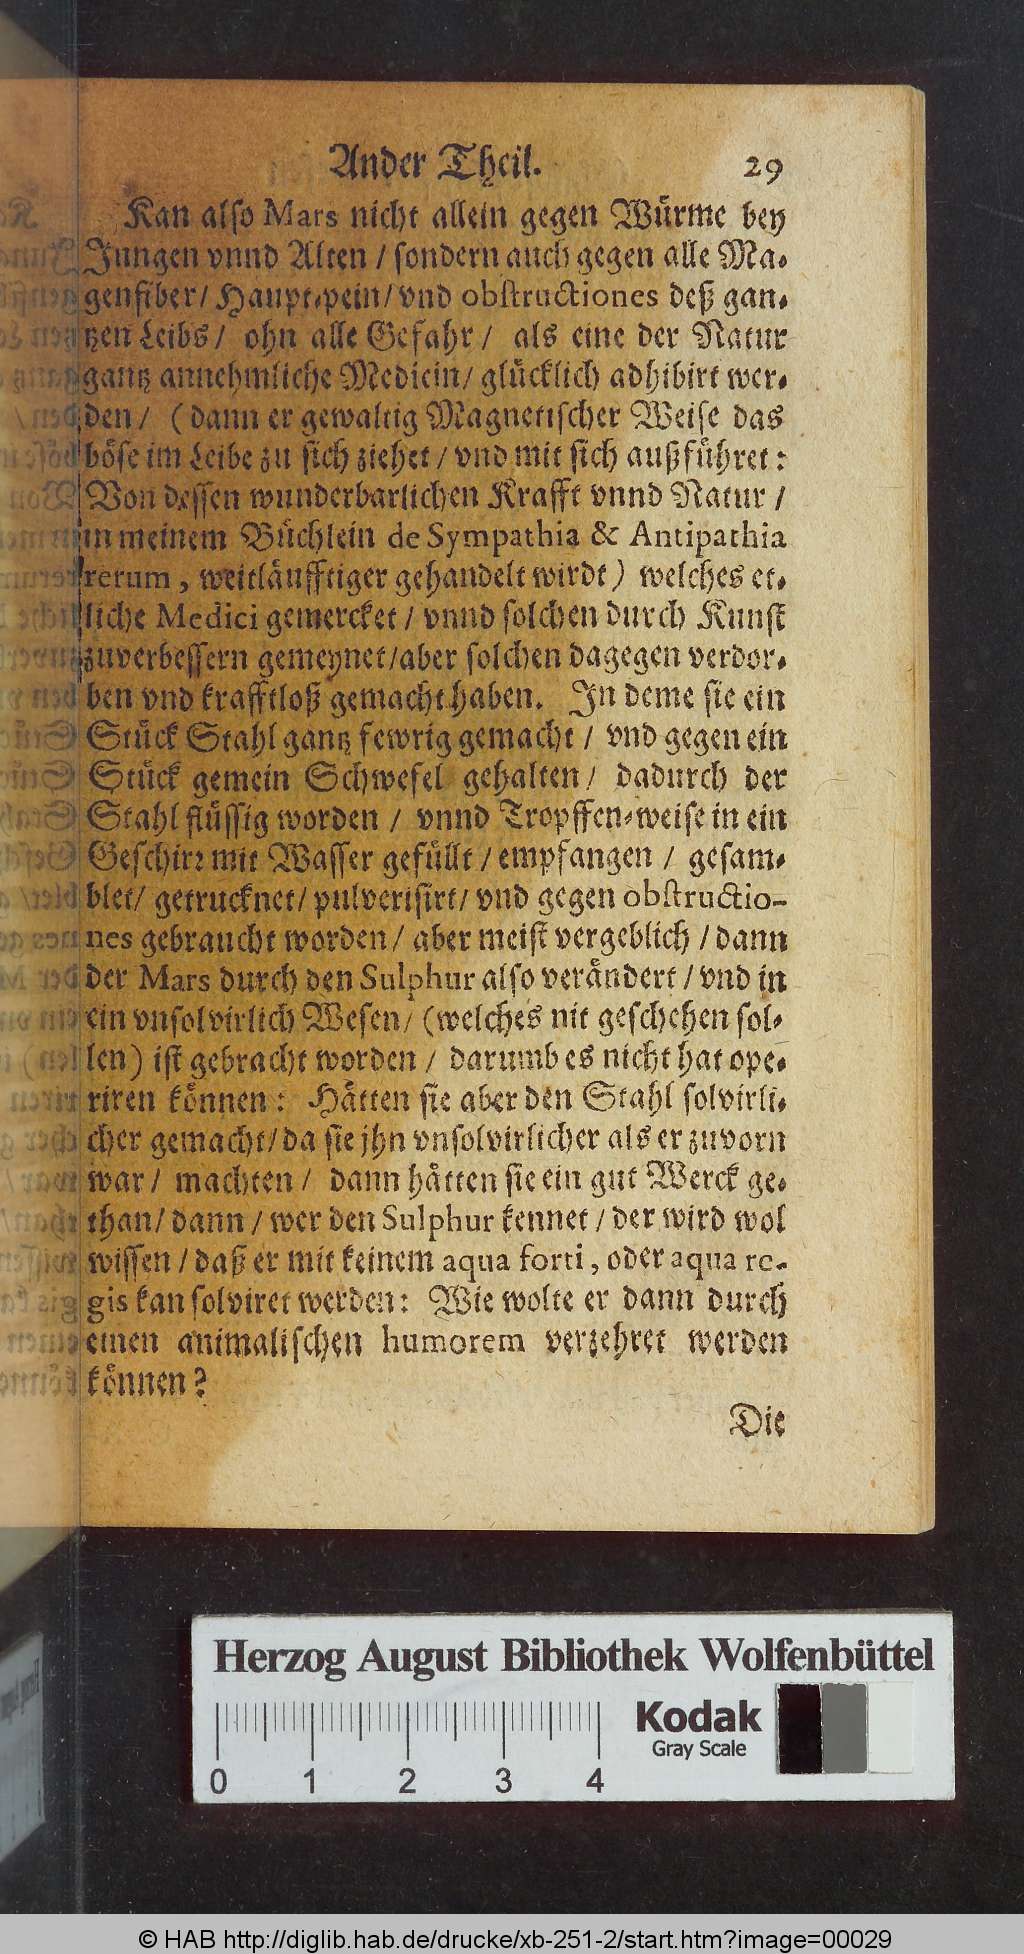 Ander Theil. 29
Kan also Mars nicht allein gegen Würme bey
Jungen vnnd Alten / sondern auch gegen alle Ma-
genfiber / Haupt-pein / vnd obstructiones deß gan-
tzen Leibs / ohn alle Gefahr / als eine der Natur
gantz annehmliche Medicin / glücklich adhibirt wer-
den / (dann er gewaltig Magnetischer Weise das
böse im Leibe zu sich ziehet / vnd mit sich außführet:
Von dessen wunderbarlichen Krafft vnnd Natur /
in meinem Büchlein de Sympathia & Antipathia
rerum, weitläufftiger gehandelt wirdt) welches et-
liche Medici gemercket / vnnd solchen durch Kunst
zuverbessern gemeynet / aber solchen dagegen verdor-
ben vnd krafftloß gemacht haben. In deme sie ein
Stück Stahl gantz fewrig gemacht / vnd gegen ein
Stück gemein Schwefel gehalten / dadurch der
Stahl flüssig worden / vnnd Tropffen-weise in ein
Geschirr mit Wasser gefüllt / empfangen / gesam-
blet / getrucknet / pulverisirt / vnd gegen obstructio-
nes gebraucht worden / aber meist vergeblich / dann
der Mars durch den Sulphur also verändert / vnd in
ein vnsolvirlich Wesen / (welches nit geschehen sol-
len) ist gebracht worden / darumb es nicht hat ope-
riren können: Hätten sie aber den Stahl solvirli-
cher gemacht / da sie jhn vnsolvirlicher als er zuvorn
war / machten / dann hätten sie ein gut Werck ge-
than / dann / wer den Sulphur kennet / der wird wol
wissen / daß er mit keinem aqua forti, oder aqua re-
gis kan solviret werden: Wie wolte er dann durch
einen animalischen humorem verzehret werden
können?
Die
Herzog August Bibliothek Wolfenbüttel
Kodak
Gray Scale
0 1 2 3 4
© HAB http://diglib.hab.de/drucke/xb-251-2/start.htm?image=00029